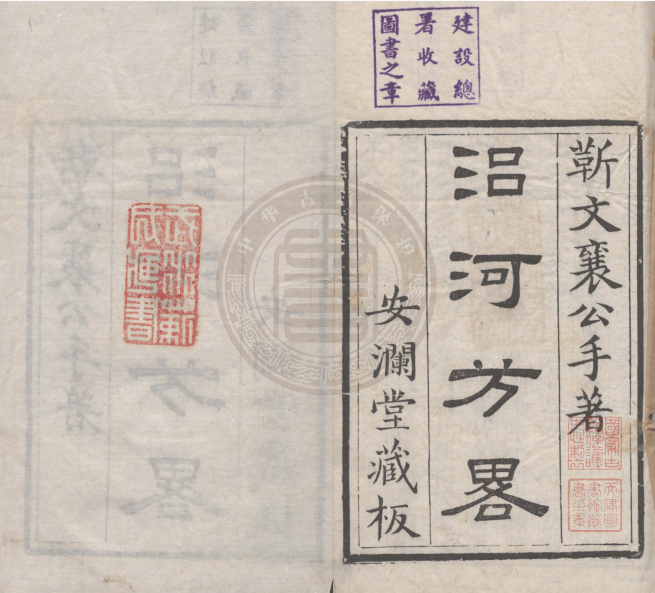 建設總
署收藏
圖書之章
靳文襄公手著
治河方畧
安瀾堂藏板